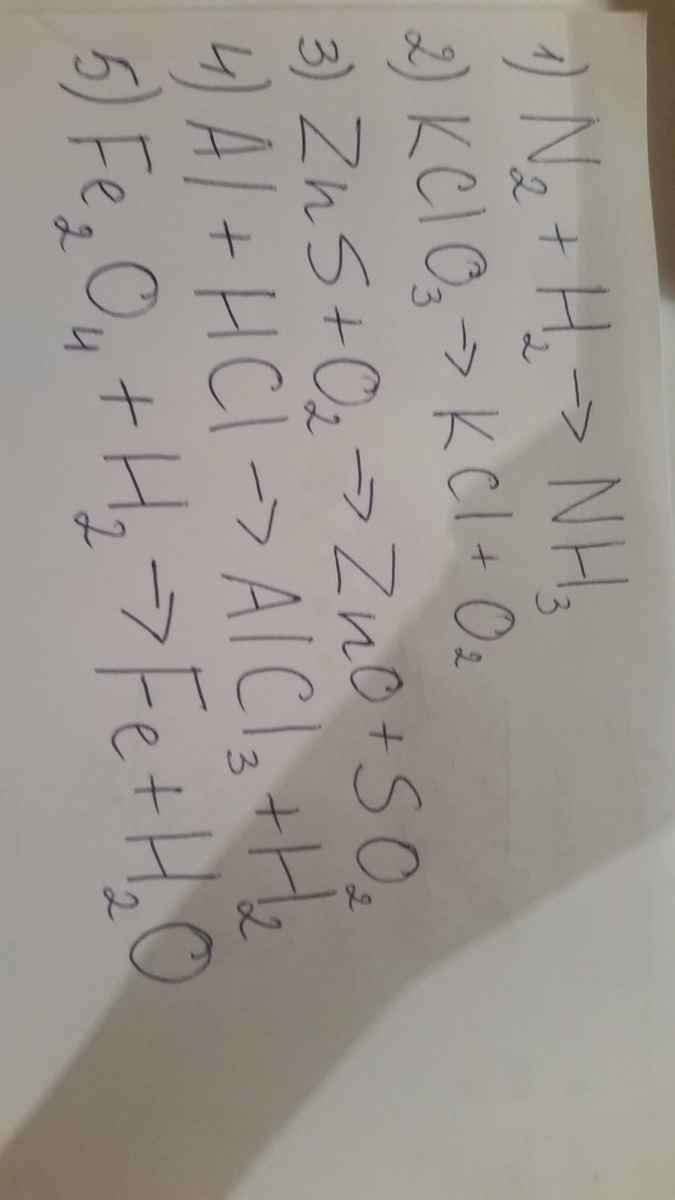 1) N₂ + H₂ → NH₃
2) KClO₃ → KCl + O₂
3) ZnS + O₂ → ZnO + SO₂
4) Al + HCl → AlCl₃ + H₂
5) Fe₂O₄ + H₂ → Fe + H₂O